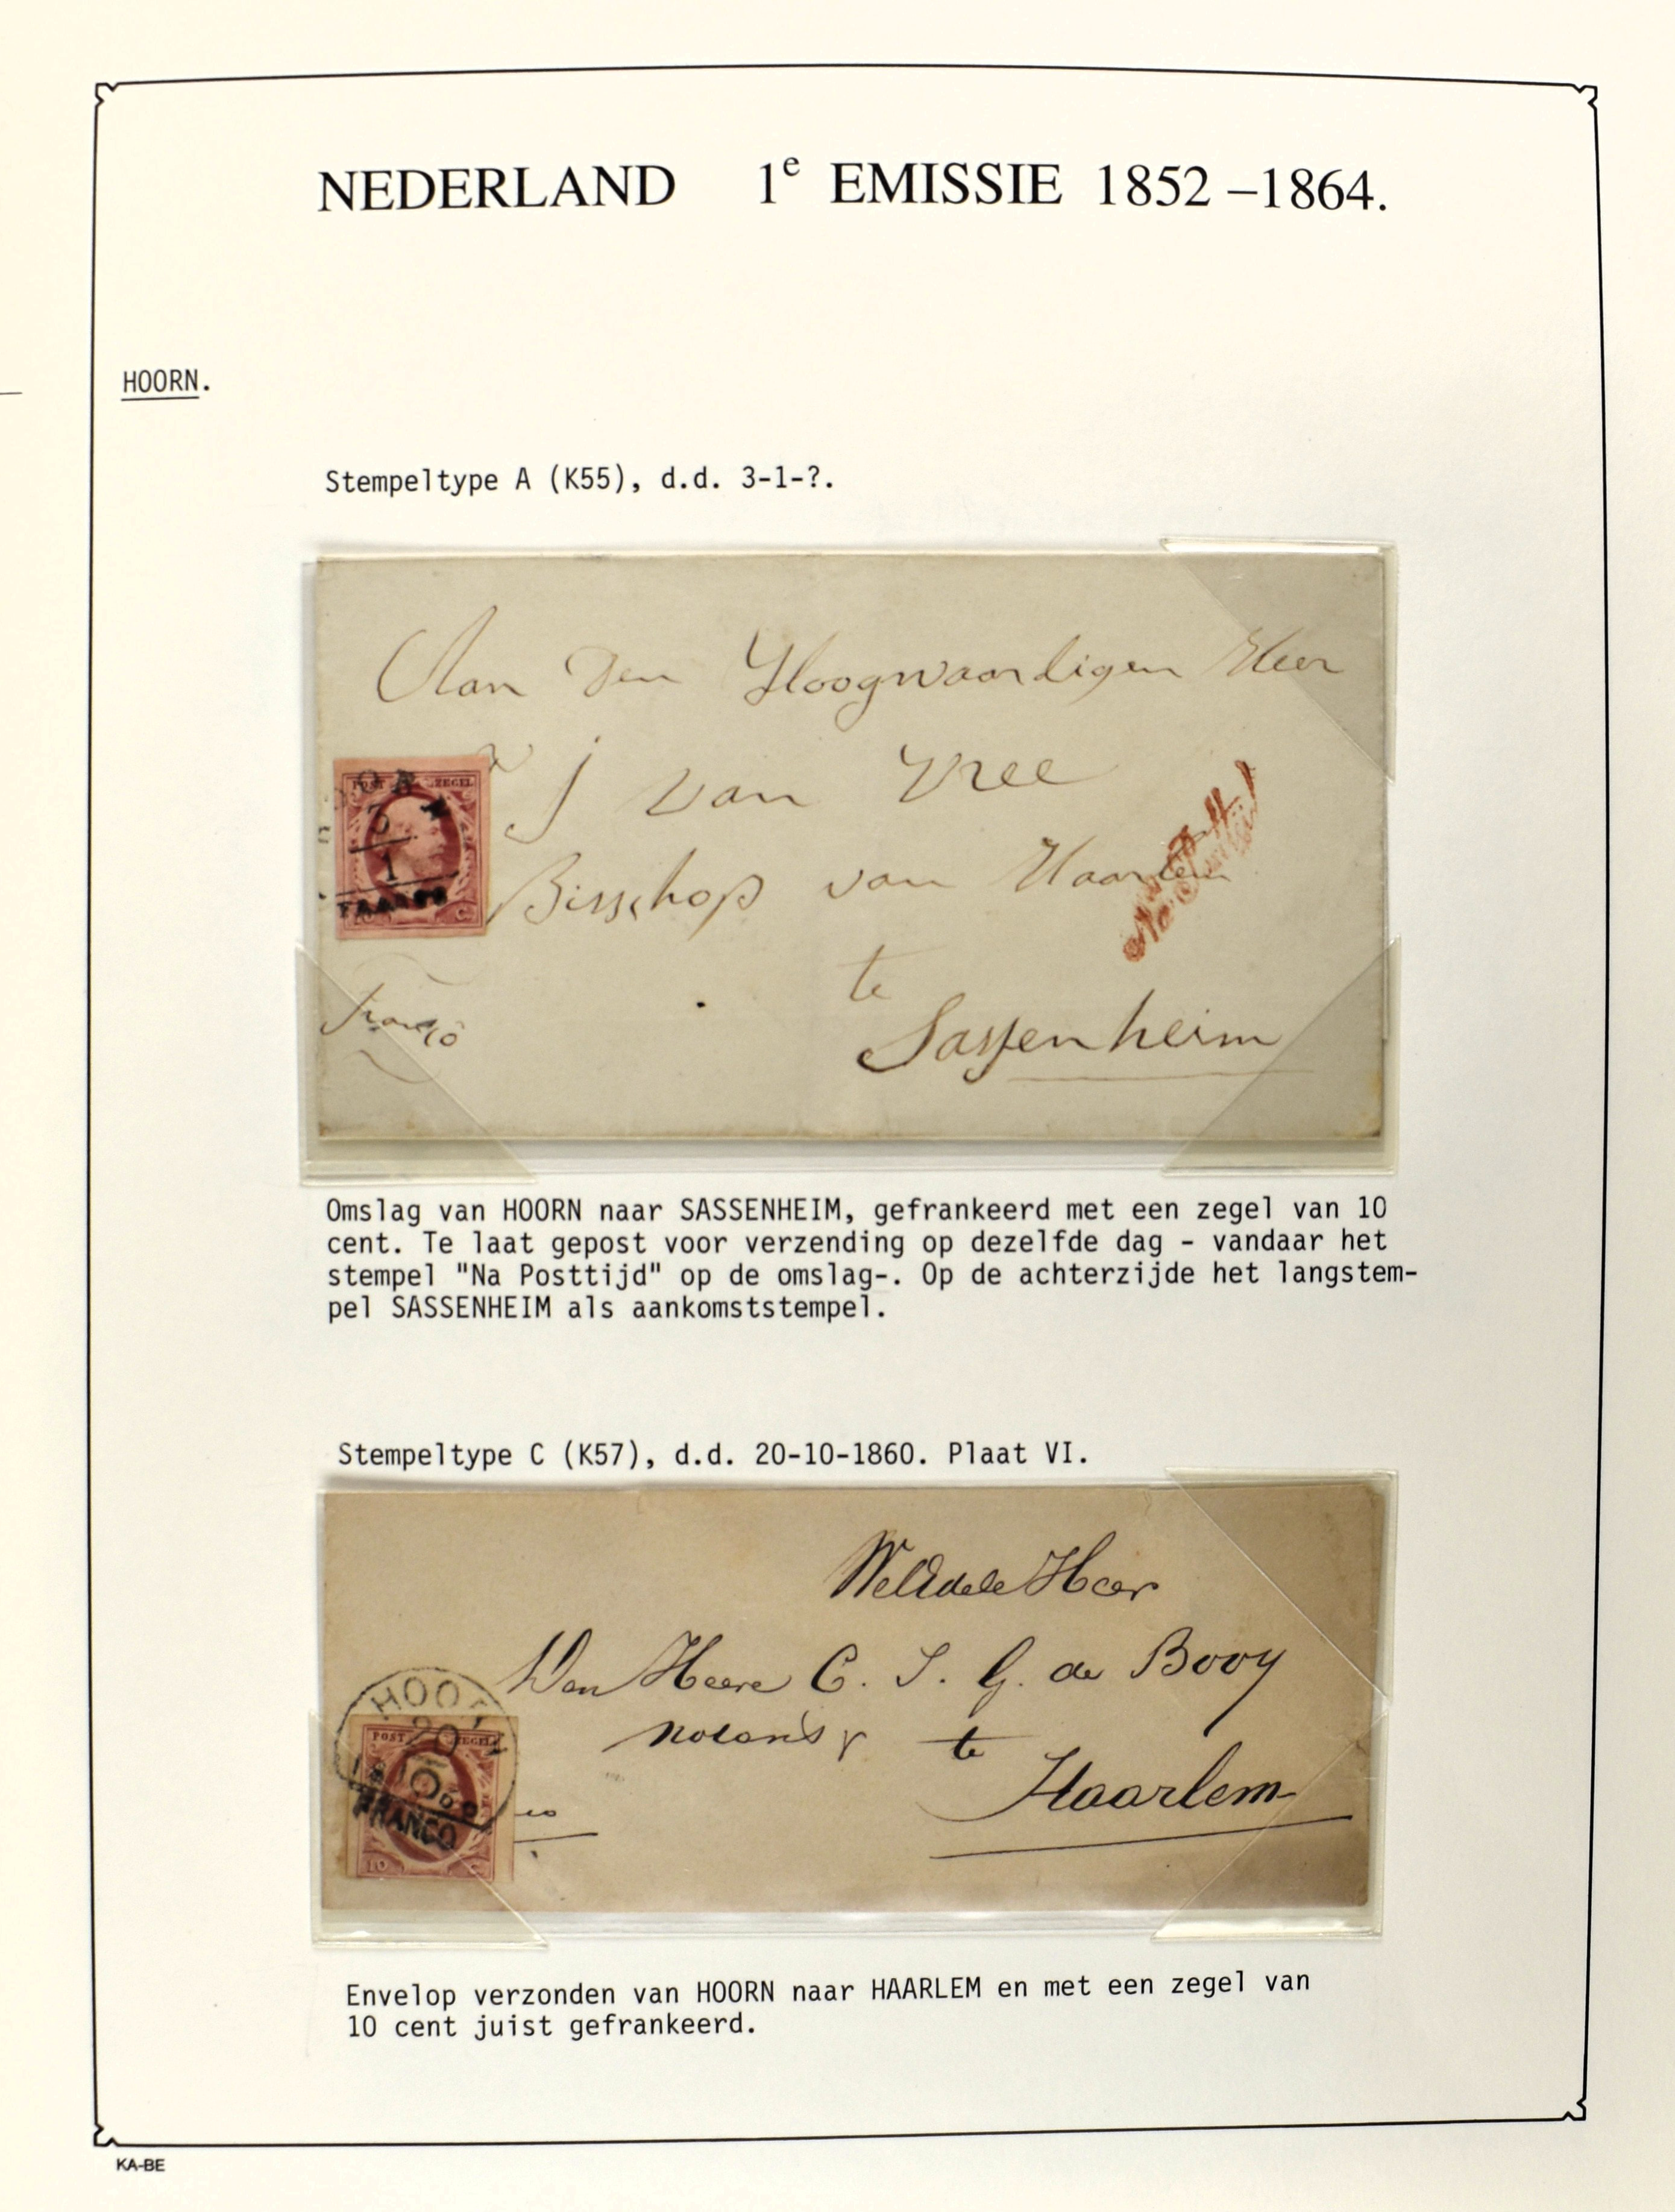 NEDERLAND 1e EMISSIE 1852 –1864.
HOORN.
Stempeltype A (K55), d.d. 3-1-?.
Aan Den Hoogwaardigen Heer
J van Vree
POST ZEGEL
3
1
FRANCO
C
Bisschop van Haarlem
Na Posttijd
te
Franco
Sassenheim
Omslag van HOORN naar SASSENHEIM, gefrankeerd met een zegel van 10
cent. Te laat gepost voor verzending op dezelfde dag - vandaar het
stempel "Na Posttijd" op de omslag-. Op de achterzijde het langstem-
pel SASSENHEIM als aankomststempel.
Stempeltype C (K57), d.d. 20-10-1860. Plaat VI.
WelEdele Heer
Den Heere C. J. G. de Booy
HOO
20
POST ZEGEL
te
Haarlem
FRANCO
10 C
Envelop verzonden van HOORN naar HAARLEM en met een zegel van
10 cent juist gefrankeerd.
KA-BE